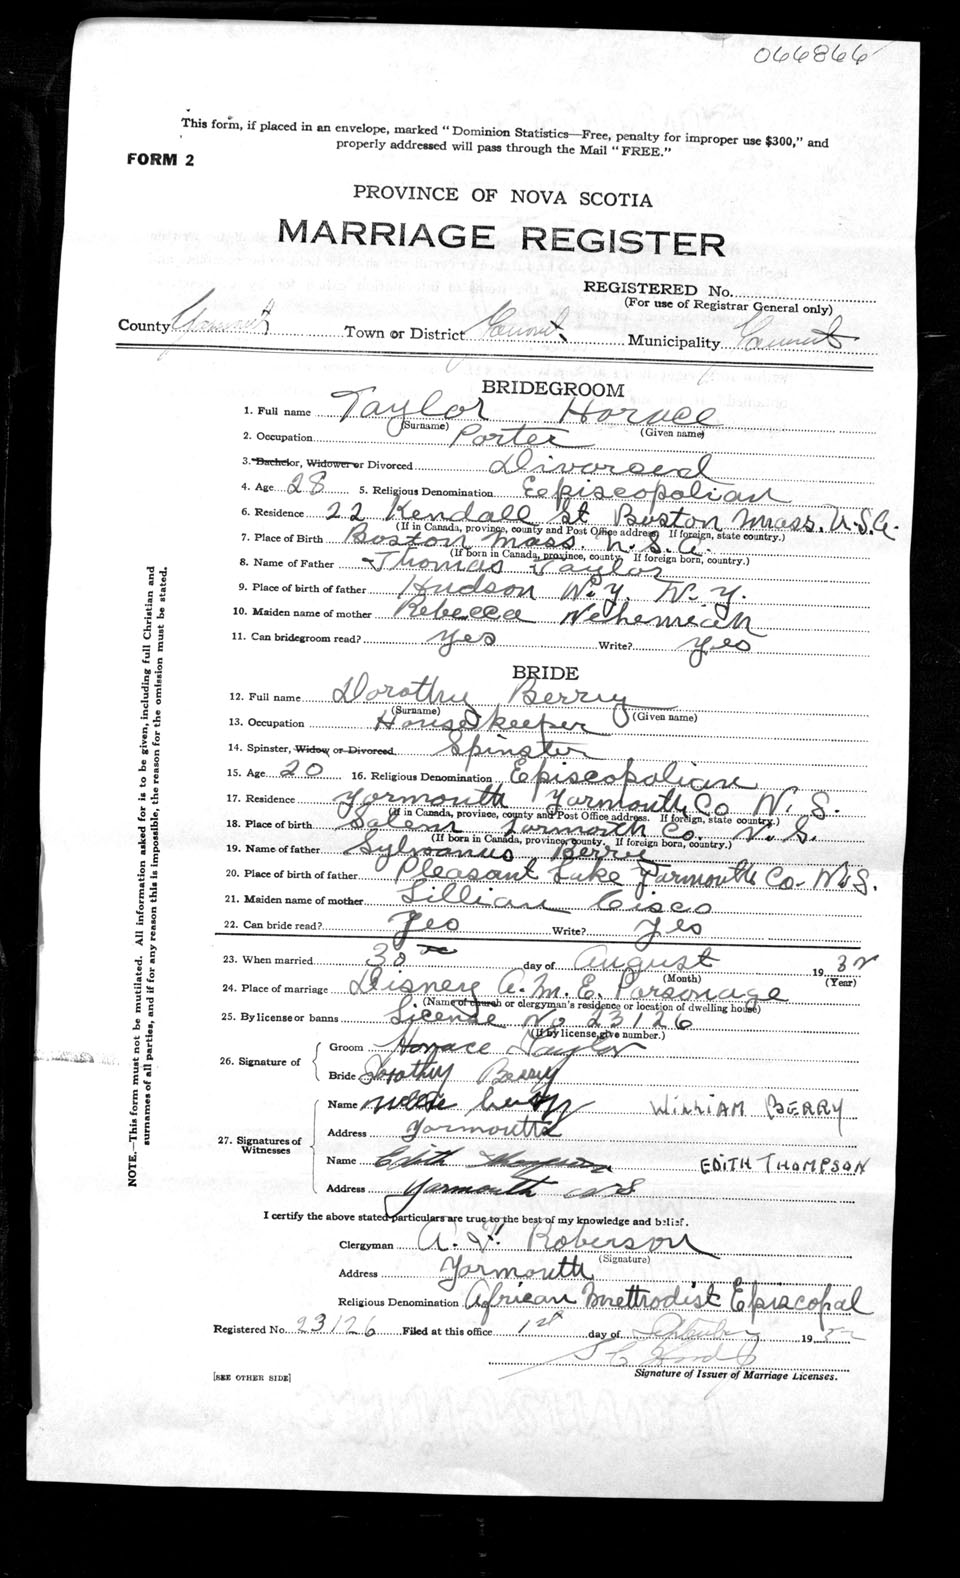 066866
This form, if placed in an envelope, marked "Dominion Statistics—Free, penalty for improper use $300," and
properly addressed will pass through the Mail "FREE."
FORM 2
PROVINCE OF NOVA SCOTIA
MARRIAGE REGISTER
REGISTERED No.
(For use of Registrar General only)
County Town or District Municipality
BRIDEGROOM
1. Full name Taylor Horace
(Surname) (Given name)
2. Occupation Porter
3. Bachelor, Widower or Divorced Divorsed
4. Age 28 5. Religious Denomination Eepiscopolian
6. Residence 22 Kendall St Boston Mass. U.S.A.
(If in Canada, province, county and Post Office address. If foreign, state country.)
7. Place of Birth Boston Mass. U.S.A.
(If born in Canada, province, county. If foreign born, country.)
8. Name of Father Thomas Taylor
9. Place of birth of father Hudson N.Y. N.Y.
10. Maiden name of mother Rebecca Nethemiah
11. Can bridegroom read? yes Write? yes
BRIDE
12. Full name Dorothy Berry
(Surname) (Given name)
13. Occupation House keeper
14. Spinster, Widow or Divorced Spinster
15. Age 20 16. Religious Denomination Episcopalian
17. Residence Yarmouth Yarmouth Co N.S.
(If in Canada, province, county and Post Office address. If foreign, state country.)
18. Place of birth Salem Yarmoth Co. N.S.
(If born in Canada, province, county. If foreign born, country.)
19. Name of father Sylvanus Berry
20. Place of birth of father Pleasant Lake Yarmouth Co. N.S.
21. Maiden name of mother Lillian Cisco
22. Can bride read? Yes Write? Yes
23. When married 30 day of August 1932
(Month) (Year)
24. Place of marriage Disney A.M.E. Parsonage
(Name of church or clergyman's residence or location of dwelling house)
25. By license or banns License No 23126
(If by license, give number.)
26. Signature of Groom Horace Taylor
Bride Dorothy Berry
27. Signatures of Witnesses
Name WILLIAM BERRY
Address Yarmouth
Name Edith Thompson EDITH THOMPSON
Address Yarmouth NS
I certify the above stated particulars are true to the best of my knowledge and belief.
Clergyman A. V. Roberson
(Signature)
Address Yarmouth
Religious Denomination African Methodist Episcopal
Registered No. 23126 Filed at this office 1st day of September 1932
Signature of Issuer of Marriage Licenses.
[SEE OTHER SIDE]
NOTE.—This form must not be mutilated. All information asked for is to be given, including full Christian and
surnames of all parties, and if for any reason this is impossible, the reason for the omission must be stated.